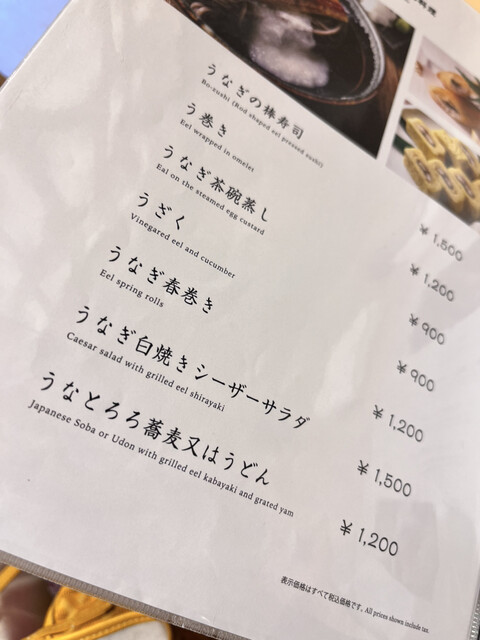 うなぎの棒寿司
Bo-sushi (Rod shaped eel pressed sushi)
¥1,500
う巻き
Eel wrapped in omelet
¥1,200
うなぎ茶碗蒸し
Eal on the steamed egg custard
¥900
うざく
Vinegared eel and cucumber
¥900
うなぎ春巻き
Eel spring rolls
¥1,200
うなぎ白焼きシーザーサラダ
Caesar salad with grilled eel shirayaki
¥1,500
うなとろろ蕎麦又はうどん
Japanese Soba or Udon with grilled eel kabayaki and grated yam
¥1,200
表示価格はすべて税込価格です。All prices shown include tax.